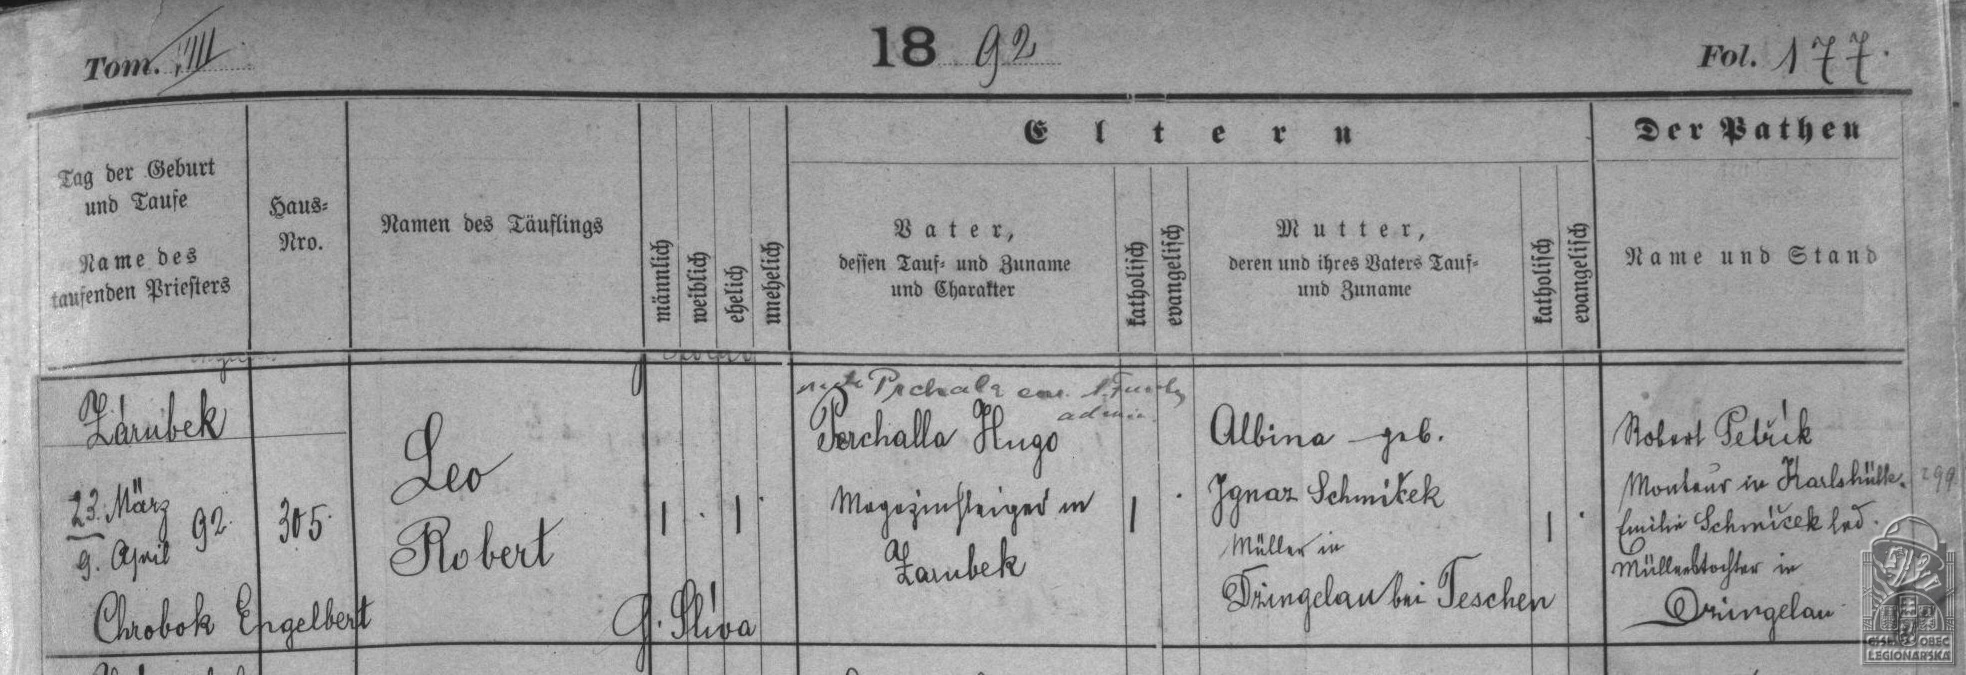 Tom. VIII
1892
Fol. 177.
Eltern
Der Pathen
Tag der Geburt
und Taufe
Name des
taufenden Priesters
Haus-
Nro.
Namen des Täuflings
männlich
weiblich
ehelich
unehelich
Vater,
dessen Tauf- und Zuname
und Charakter
katholisch
evangelisch
Mutter,
deren und ihres Vaters Tauf-
und Zuname
katholisch
evangelisch
Name und Stand
Zárubek
23. März
9. April
92.
Chrobok Engelbert
305.
Leo
Robert
G. Slíva
Prchala
admin.
Perchalla Hugo
Magazinsteiger in
Zarubek
Albina geb.
Ignaz Schmiček
Müller in
Dzingelau bei Teschen
Robert Petřík
Monteur in Karlshütte.
299
Emilie Schmíček led.
Müllerstochter in
Dzingelau
ČESKÁ OBEC
LEGIONÁŘSKÁ